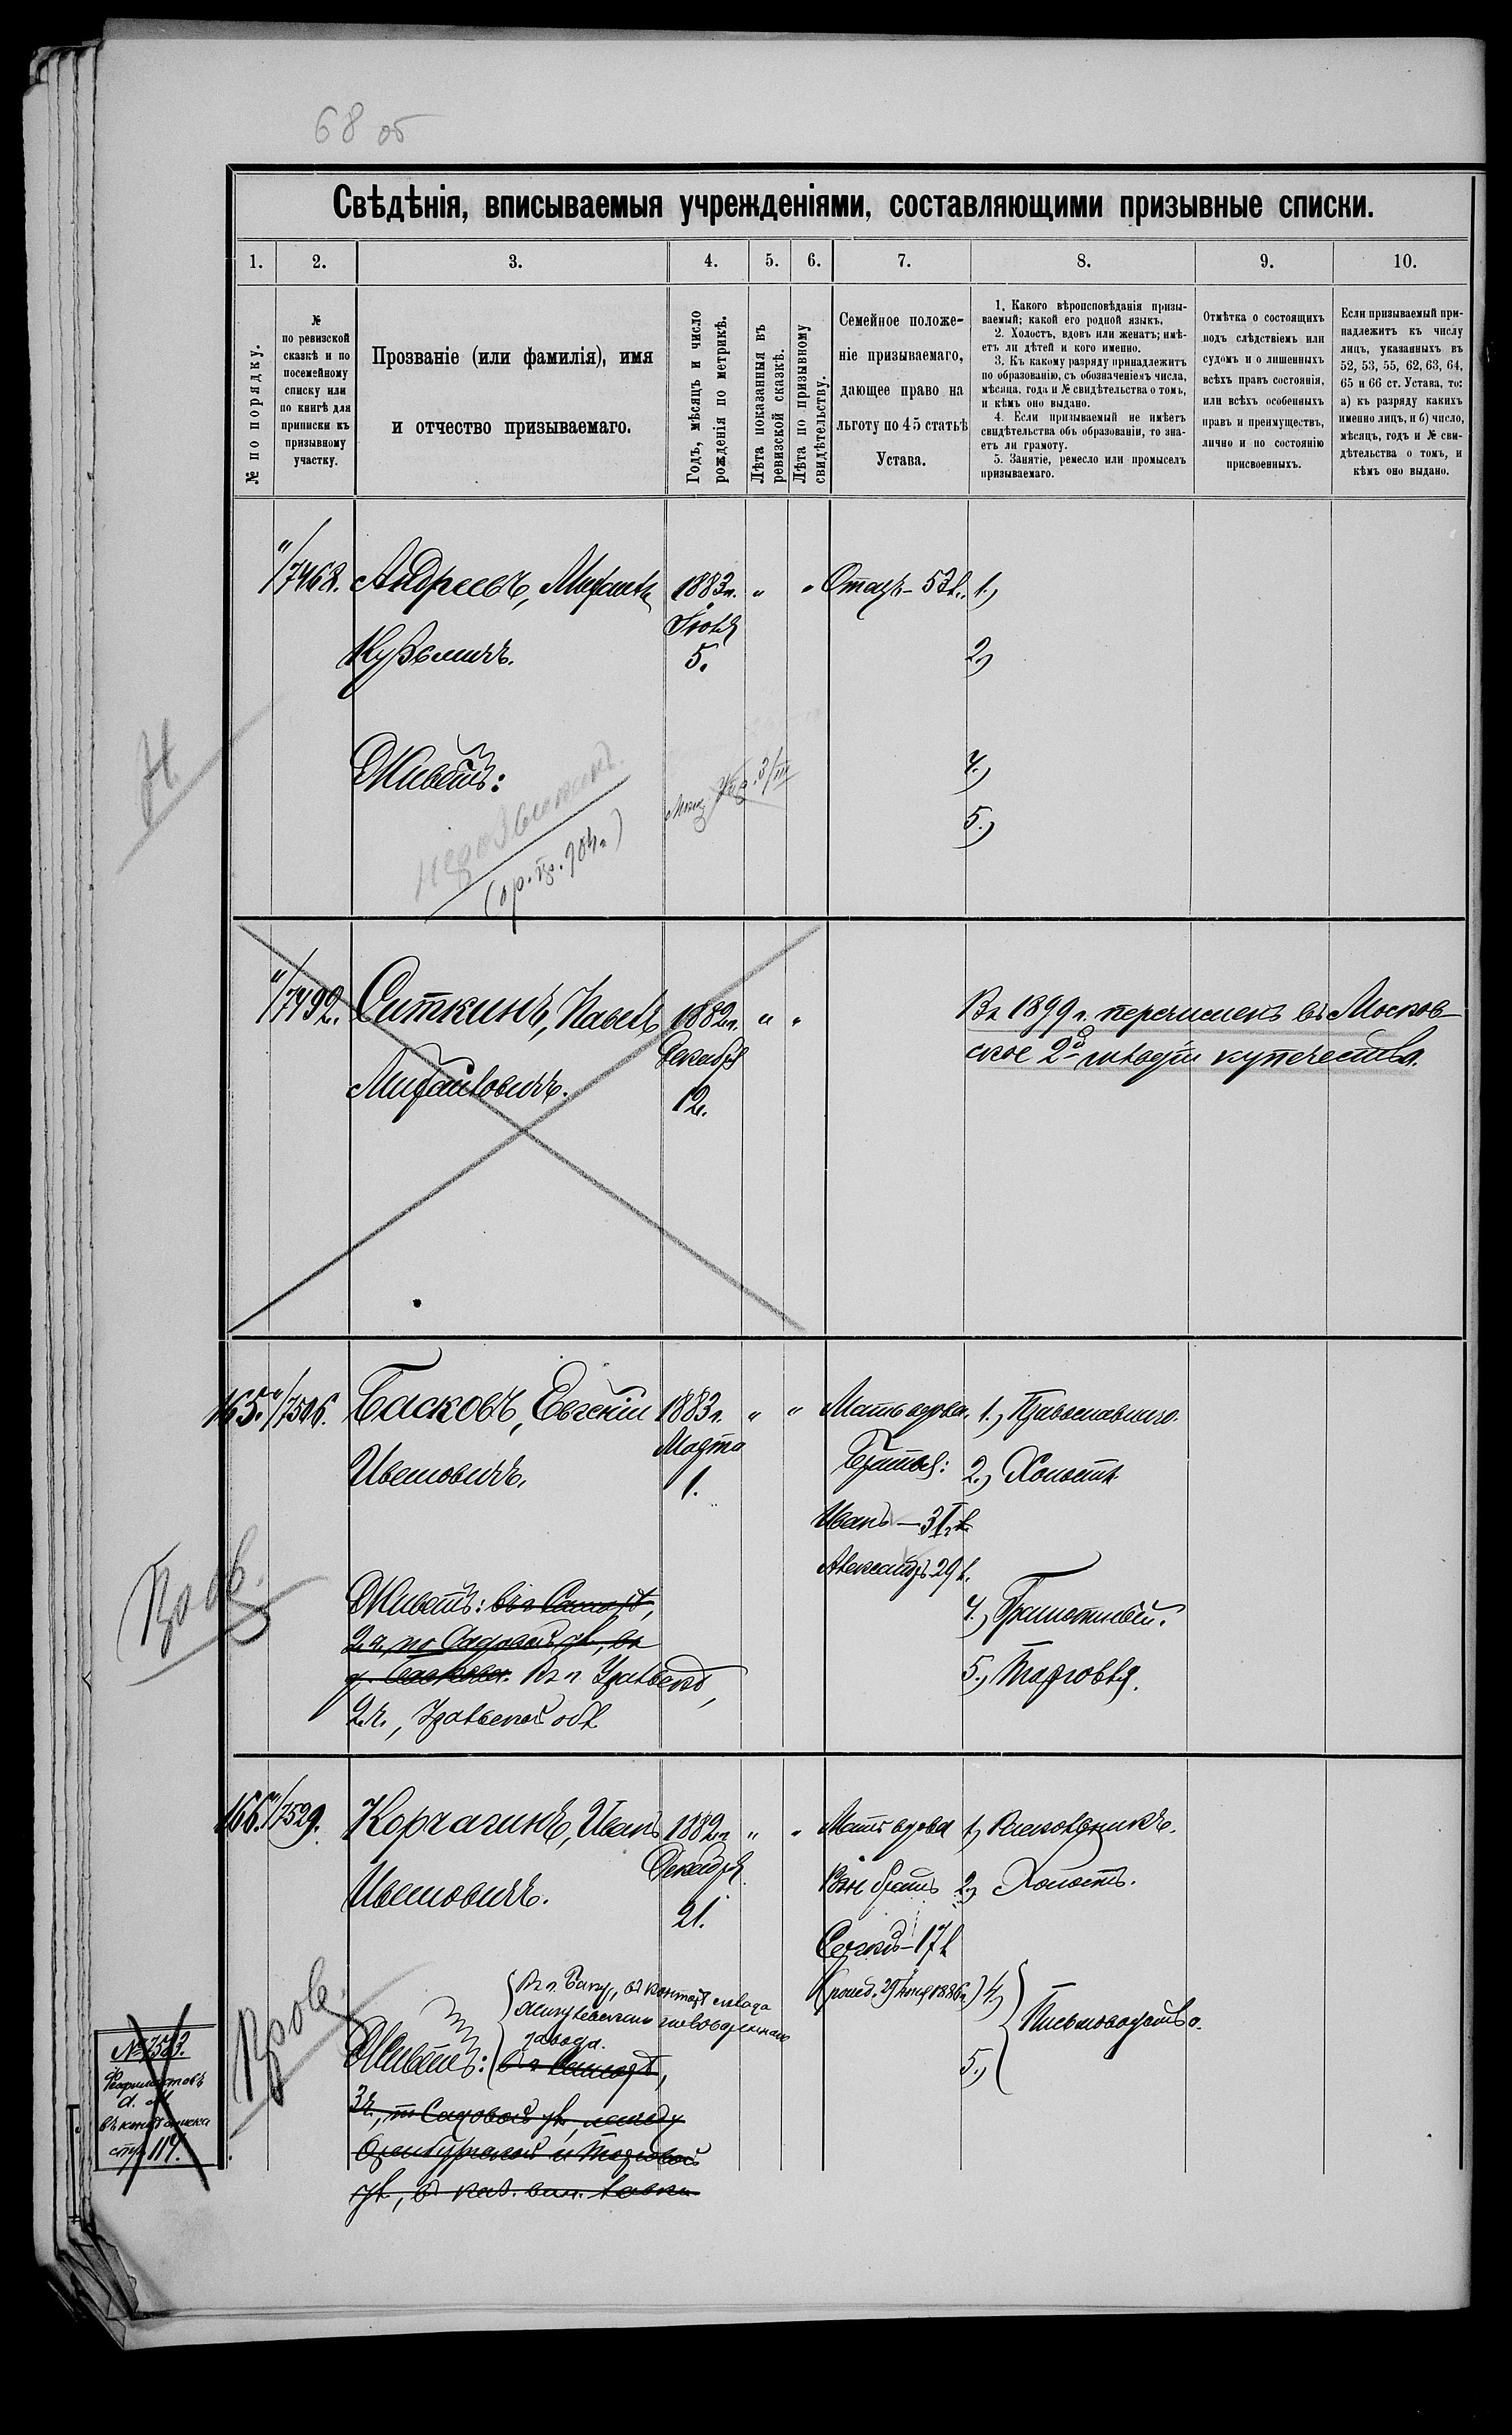 68 об
Свѣдѣнія, вписываемыя учрежденіями, составляющими призывные списки.
1. 2. 3. 4. 5. 6. 7. 8. 9. 10.
№ по порядку.
№
по ревизской
сказкѣ и по
посемейному
списку или
по книгѣ для
приписки къ
призывному
участку.
Прозваніе (или фамилія), имя
и отчество призываемаго.
Годъ, мѣсяцъ и число
рожденія по метрикѣ.
Лѣта показанныя въ
ревизской сказкѣ.
Лѣта по призывному
свидѣтельству.
Семейное положе-
ніе призываемаго,
дающее право на
льготу по 45 статьѣ
Устава.
1. Какого вѣроисповѣданія призы-
ваемый; какой его родной языкъ.
2. Холостъ, вдовъ или женатъ; имѣ-
етъ ли дѣтей и кого именно.
3. Къ какому разряду принадлежитъ
по образованію, съ обозначеніемъ числа,
мѣсяца, года и № свидѣтельства о томъ,
и кѣмъ оно выдано.
4. Если призываемый не имѣетъ
свидѣтельства объ образованіи, то зна-
етъ ли грамоту.
5. Занятіе, ремесло или промыселъ
призываемаго.
Отмѣтка о состоящихъ
подъ слѣдствіемъ или
судомъ и о лишенныхъ
всѣхъ правъ состоянія,
или всѣхъ особенныхъ
правъ и преимуществъ,
лично и по состоянію
присвоенныхъ.
Если призываемый при-
надлежитъ къ числу
лицъ, указанныхъ въ
52, 53, 55, 62, 63, 64,
65 и 66 ст. Устава, то:
а) къ разряду какихъ
именно лицъ, и б) число,
мѣсяцъ, годъ и № сви-
дѣтельства о томъ, и
кѣмъ оно выдано.
"/7462. Андреевъ, Михаилъ 1883 г. " " Отецъ - 52 л. 1.)
Іюля
Кузьмичъ. 5. 2.)
Н
Живетъ: 4.)
5.)
"/7492. Ситкинъ, Павелъ 1882 г. " " Въ 1899 г. перечисленъ въ Москов-
Декабря ское 2й гильдіи купечество.
Михайловичъ. 12.
165. "/7506. Басковъ, Евгеній 1883 г. " " Мать вдова. 1.) Православнаго.
Марта
Ивановичъ. 1. Братья: 2.) Холостъ
Иванъ - 31 г.
Александръ 29 л.
Пров.
Живетъ: въ г. Самарѣ, 4.) Грамотный.
2 ч., по Садовой ул., въ
д. Баскова. Въ г. Уральскѣ, 5.) Торговля.
2 ч., Уральской обл.
166. "/7529. Корчагинъ, Иванъ 1882 г. " " Мать вдова 1.)
Декабря
Ивановичъ. 21. братъ 2.) Холостъ.
17 л
Пров.
Въ г. Баку, въ конторѣ склада
Жигулевскаго пивовареннаго
завода. 4.) Письмоводство.
Живетъ: въ г. Самарѣ, 5.)
3 ч., по Садовой ул., между
Оренбургской и Торговой
ул., въ каз. вин. лавки
№ 7583.
стр. 114.